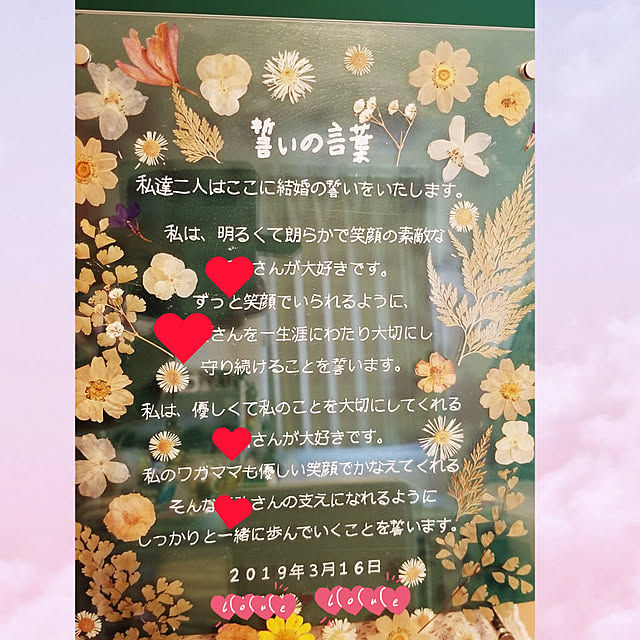 誓いの言葉
私達二人はここに結婚の誓いをいたします。
私は、明るくて朗らかで笑顔の素敵な
さんが大好きです。
ずっと笑顔でいられるように、
さんを一生涯にわたり大切にし
守り続けることを誓います。
私は、優しくて私のことを大切にしてくれる
さんが大好きです。
私のワガママも優しい笑顔でかなえてくれる
そんな さんの支えになれるように
しっかりと一緒に歩んでいくことを誓います。
2019年3月16日
love love